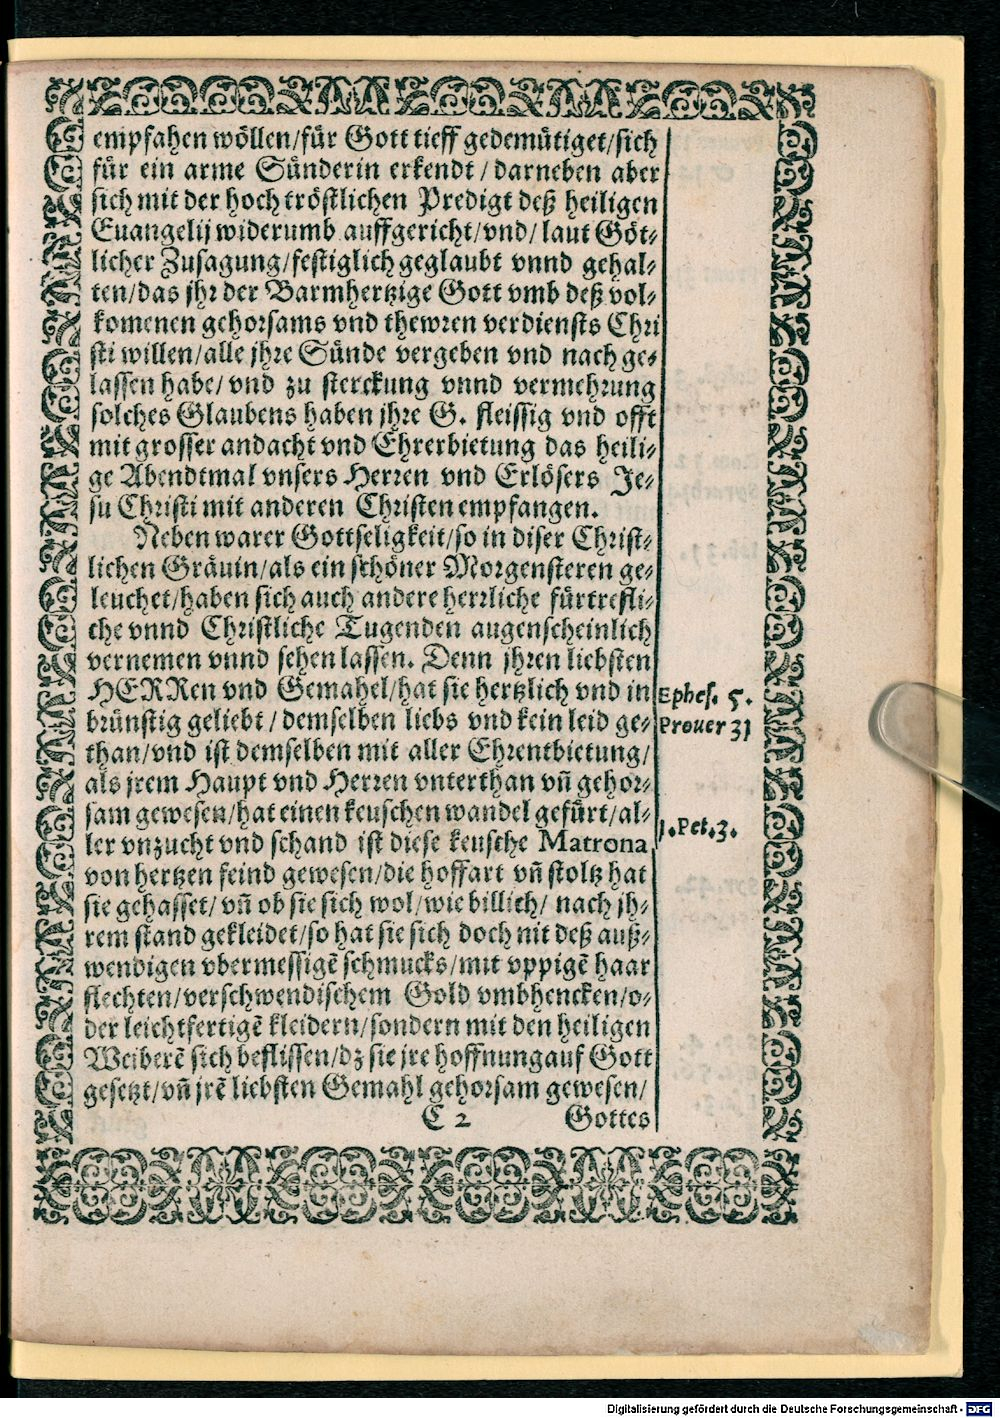 empfahen wöllen/für Gott tieff gedemütiget/sich
für ein arme Sünderin erkendt / darneben aber
sich mit der hoch tröstlichen Predigt deß heiligen
Euangelij widerumb auffgericht/vnd/ laut Göt-
licher Zusagung/festiglich geglaubt vnnd gehal-
ten/das jhr der Barmhertzige Gott vmb deß vol-
komenen gehorsams vnd thewren verdiensts Chri
sti willen/alle jhre Sünde vergeben vnd nach ge-
lassen habe/ vnd zu sterckung vnnd vermehrung
solches Glaubens haben jhre G. fleissig vnd offt
mit grosser andacht vnd Ehrerbietung das heili-
ge Abendtmal vnsers Herren vnd Erlösers Je-
su Christi mit anderen Christen empfangen.
Neben warer Gottseligkeit/so in diser Christ-
lichen Gräuin/als ein schöner Morgensteren ge-
leuchet/haben sich auch andere herrliche fürtrefli-
che vnnd Christliche Tugenden augenscheinlich
vernemen vnnd sehen lassen. Denn jhren liebsten
HERRen vnd Gemahel/hat sie hertzlich vnd in
brünstig geliebt / demselben liebs vnd kein leid ge-
than/vnd ist demselben mit aller Ehrentbietung/
als jrem Haupt vnd Herren vnterthan vñ gehor-
sam gewesen/hat einen keuschen wandel gefürt/al-
ler vnzucht vnd schand ist diese keusche Matrona
von hertzen feind gewesen/die hoffart vñ stoltz hat
sie gehasset/ vñ ob sie sich wol/wie billich/ nach jh-
rem stand gekleidet/so hat sie sich doch nit deß auß-
wendigen vbermessigē schmucks/mit vppigē haar
flechten/verschwendischem Gold vmbhencken/o-
der leichtfertigē kleidern/sondern mit den heiligen
Weiberē sich beflissen/dz sie jre hoffnung auf Gott
gesetzt/vñ jrē liebsten Gemahl gehorsam gewesen/
C 2 Gottes
Ephes. 5.
Prouer 31
1. Pet. 3.
Digitalisierung gefördert durch die Deutsche Forschungsgemeinschaft - DFG